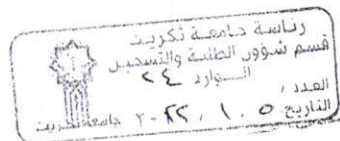 رئاسة جامعة تكريت
قسم شؤون الطلبة والتسجيل
الوارد ٢٤
العدد /
التاريخ ٥ / ١ / ٢٠٢٢
جامعة تكريت